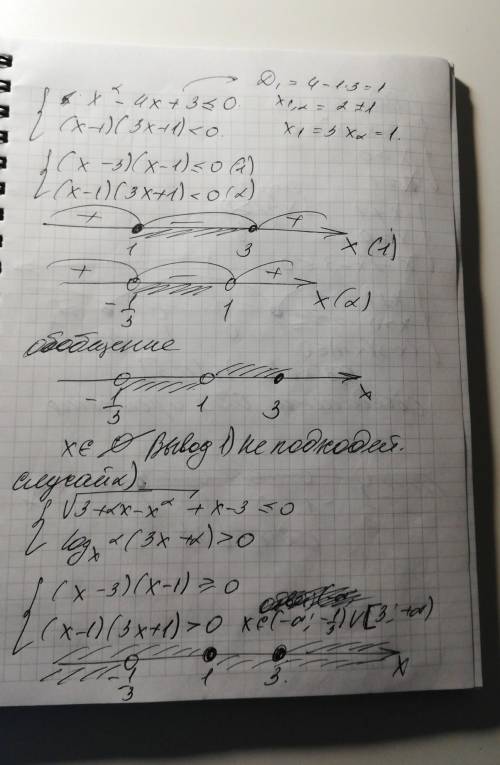 x² - 4x + 3 ≤ 0 D₁ = 4 - 1·3 = 1
(x-1)(3x+1) < 0 x₁,₂ = 2 ± 1
x₁ = 3 x₂ = 1.
(x-3)(x-1) ≤ 0 (1)
(x-1)(3x+1) < 0 (2)
+ - +
1 3 x (1)
+ - +
-1/3 1 x (2)
обобщение
-1/3 1 3 x
x ∈ ∅ Вывод 1) не подходит.
случай 2)
√3+2x-x² + x-3 ≤ 0
logₓ 2 (3x+2) > 0
(x-3)(x-1) ≥ 0
(x-1)(3x+1) > 0 x∈(-∞; -1/3) ∪ [3; +∞)
-1/3 1 3. x